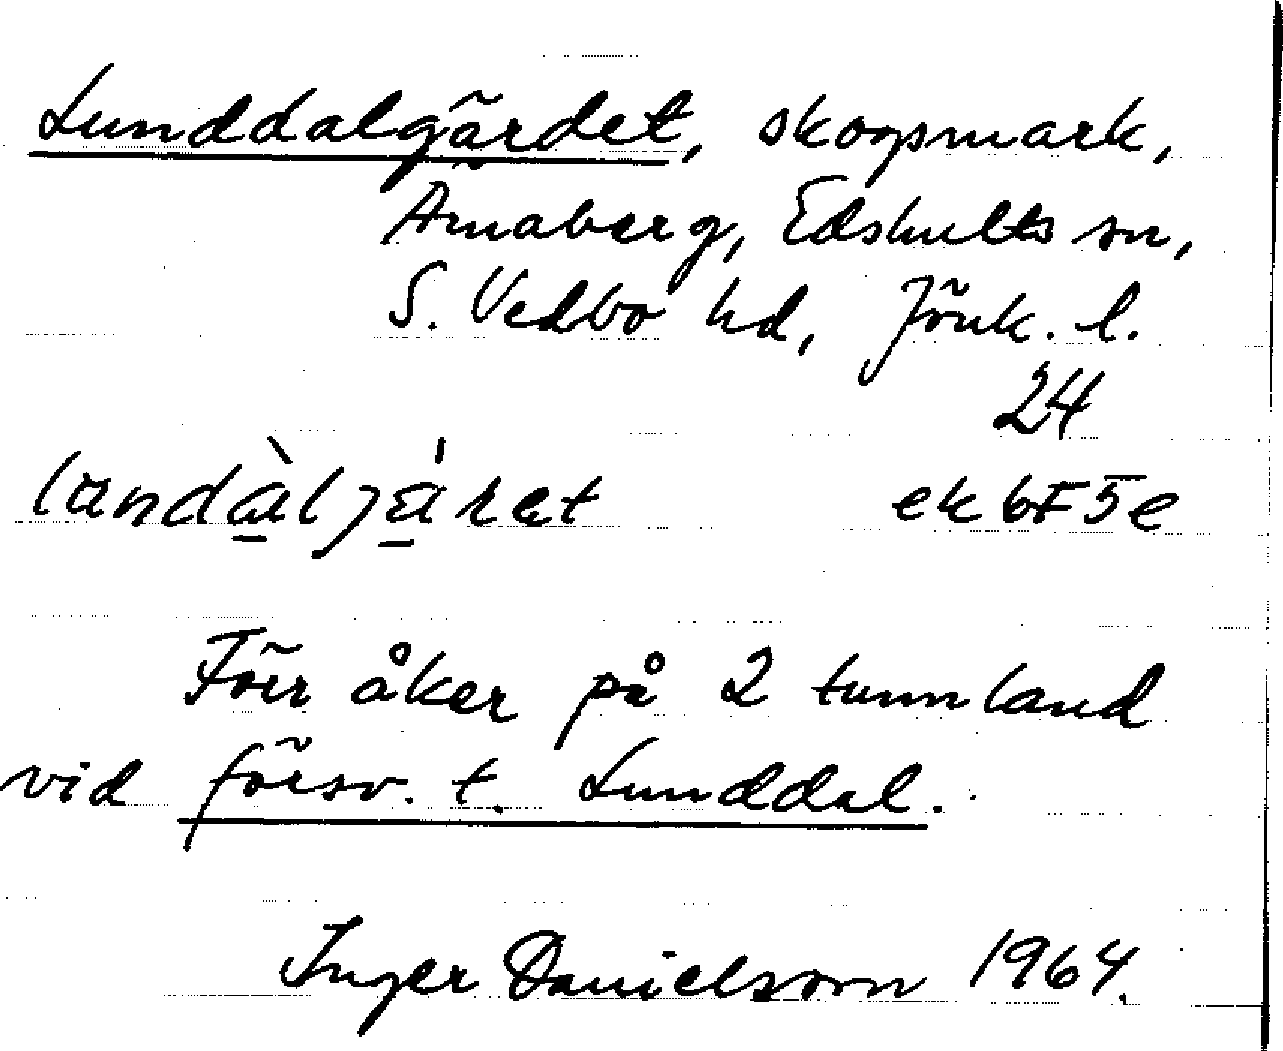 Lunddalgärdet, skogsmark,
Ämaberg, Edshults sn,
S. Vedbo hd, Jönk. l.
24
ek 6F5e
Förr åker på 2 tunnland
vid försv. t. Lunddal.
Inger Danielsson 1964.